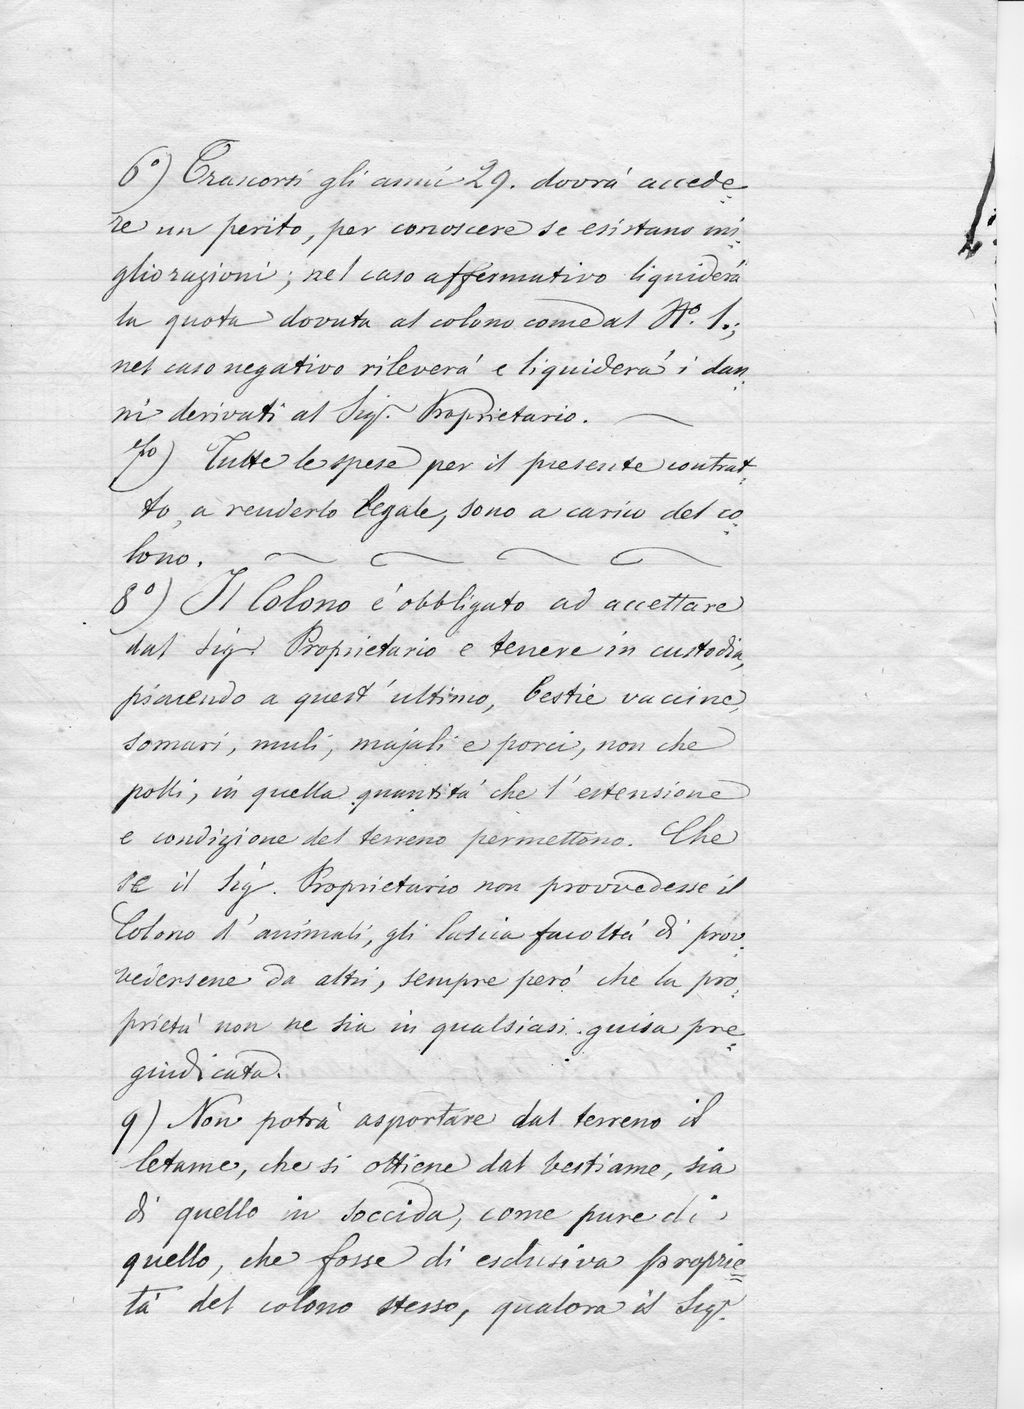 6º) Trascorsi gli anni 29. dovrà accede=
re un perito, per conoscere se esistano mi=
gliorazioni; nel caso affermativo liquiderà
la quota dovuta al colono come al Nº. 1.;
nel caso negativo rileverà e liquiderà i dan=
ni derivati al Sigr. Proprietario. —
7º) Tutte le spese per il presente contrat=
to, a renderlo legale, sono a carico del co=
lono. — — — —
8º) Il Colono é obbligato ad accettare
dal Sigr. Proprietario e tenere in custodia,
piacendo a quest'ultimo, bestie vaccine,
somari, muli, majali e porci, non che
polli, in quella quantità che l'estensione
e condizione del terreno permettono. Che
se il Sigr. Proprietario non provvedesse il
Colono d'animali, gli lascia facoltà di prov=
vedersene da altri, sempre però che la pro=
prietà non ne sia in qualsiasi guisa pre=
giudicata.
9) Non potrà asportare dal terreno il
letame, che si ottiene dal bestiame, sia
di quello in soccida, come pure di
quello, che fosse di esclusiva proprie=
tà del colono stesso, qualora il Sigr.